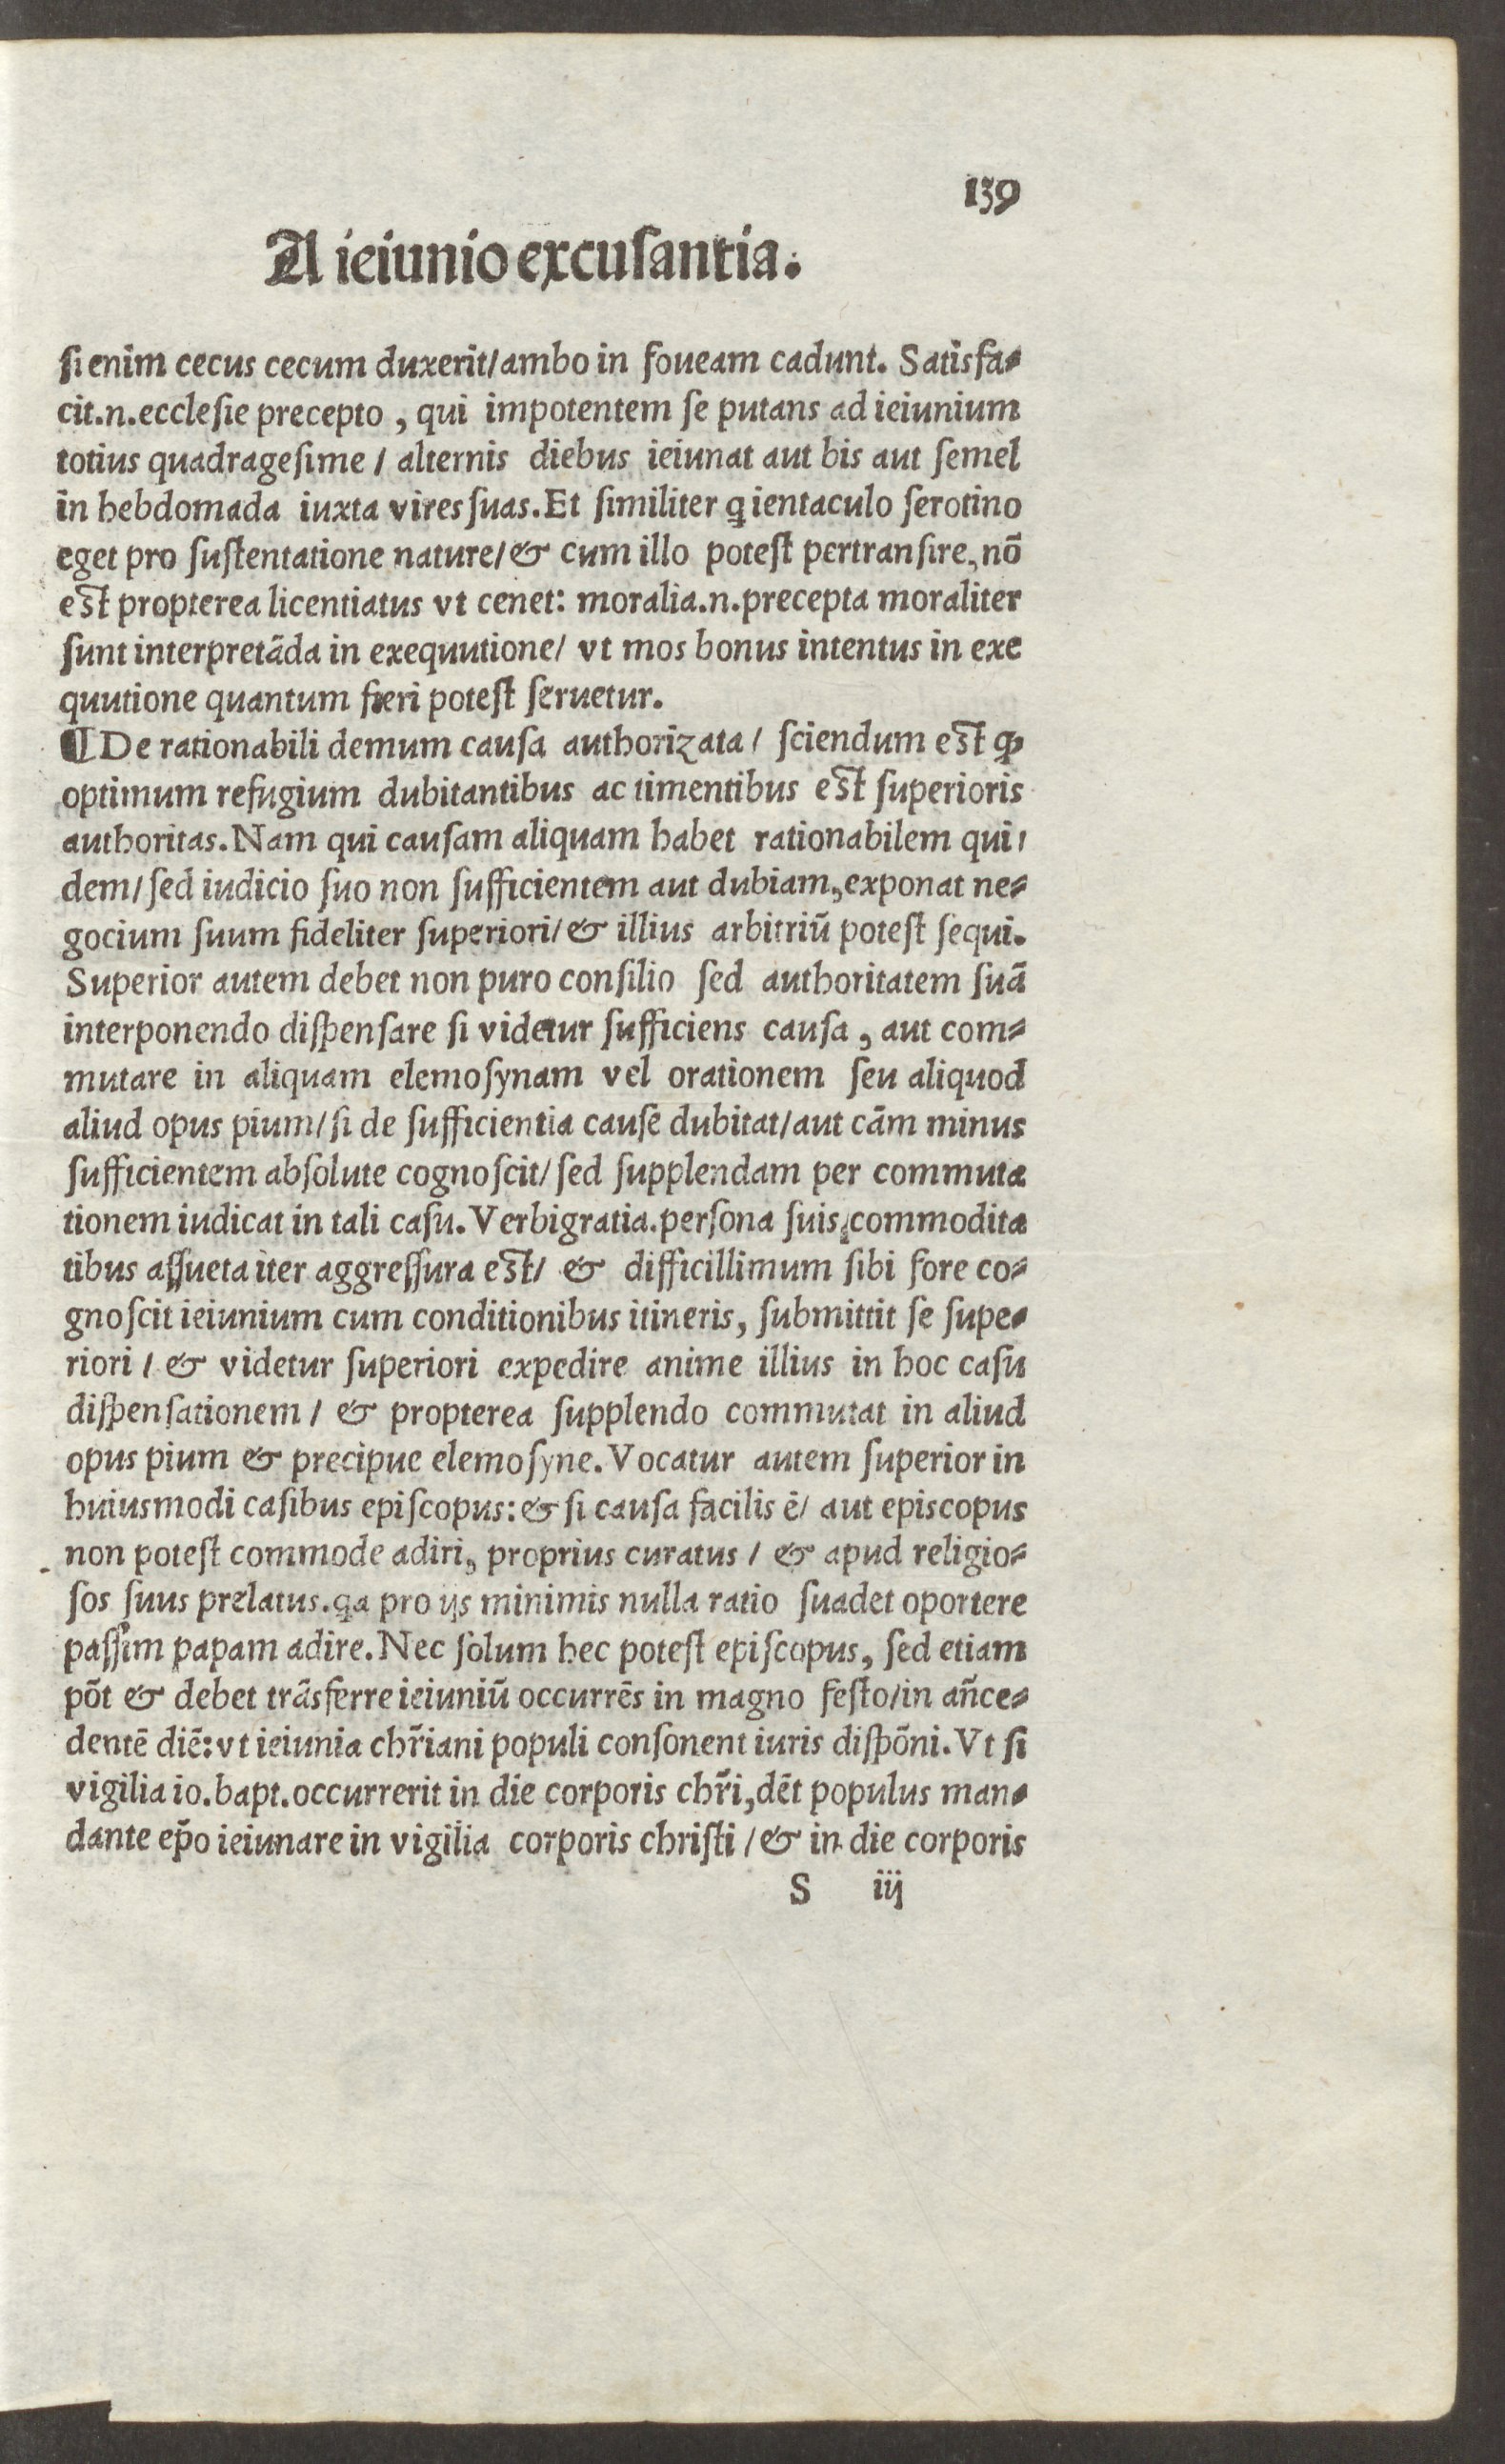 139
A ieiunio excusantia.
ſi enim cecus cecum duxerit/ambo in foueam cadunt. Satisfa⸗
cit.n.eccleſie precepto, qui impotentem ſe putans ad ieiunium
totius quadrageſime / alternis diebus ieiunat aut bis aut ſemel
in hebdomada iuxta vires ſuas. Et ſimiliter q ientaculo ſerotino
eget pro ſuſtentatione nature/& cum illo poteſt pertranſire, nō
eſt propterea licentiatus vt cenet: moralia.n.precepta moraliter
ſunt interpretāda in exequutione/ vt mos bonus intentus in exe
quutione quantum fieri poteſt ſeruetur.
¶ De rationabili demum cauſa authorizata / ſciendum eſt ꝙ
optimum refugium dubitantibus ac timentibus eſt ſuperioris
authoritas. Nam qui cauſam aliquam habet rationabilem qui/
dem/ſed iudicio ſuo non ſufficientem aut dubiam, exponat ne⸗
gocium ſuum fideliter ſuperiori/& illius arbitriū poteſt ſequi.
Superior autem debet non puro conſilio ſed authoritatem ſuā
interponendo diſpenſare ſi videtur ſufficiens cauſa, aut com⸗
mutare in aliquam elemoſynam vel orationem ſeu aliquod
aliud opus pium/ſi de ſufficientia cauſe dubitat/aut cām minus
ſufficientem abſolute cognoſcit/ſed ſupplendam per commuta
tionem iudicat in tali caſu. Verbigratia.perſona ſuis commodita
tibus aſſueta iter aggreſſura eſt/ & difficillimum ſibi fore co⸗
gnoſcit ieiunium cum conditionibus itineris, ſubmittit ſe ſupe⸗
riori / & videtur ſuperiori expedire anime illius in hoc caſu
diſpenſationem / & propterea ſupplendo commutat in aliud
opus pium & precipue elemoſyne. Vocatur autem ſuperior in
huiusmodi caſibus epiſcopus: & ſi cauſa facilis ē/ aut epiſcopus
non poteſt commode adiri, proprius curatus / & apud religio⸗
ſos ſuus prelatus. qa pro ijs minimis nulla ratio ſuadet oportere
paſſim papam adire. Nec ſolum hec poteſt epiſcopus, ſed etiam
pōt & debet trāsferre ieiuniū occurrēs in magno feſto/in añce⸗
dentē diē: vt ieiunia chr̄iani populi conſonent iuris diſpōni. Vt ſi
vigilia io.bapt.occurrerit in die corporis chr̄i, dēt populus man⸗
dante ep̄o ieiunare in vigilia corporis chriſti /& in die corporis
S iij